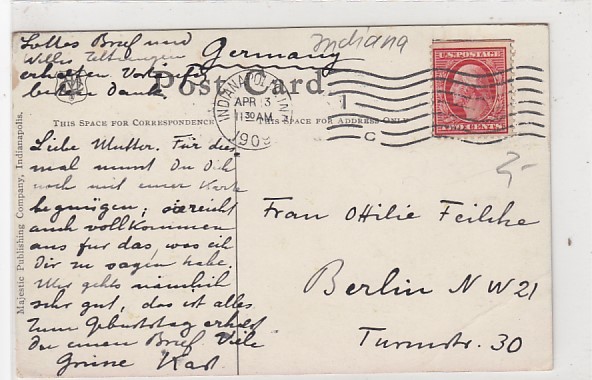 Lottes Brief und
Willis Zeitungen
erhalten. Vor
besten Dank
Germany
Indiana
Post Card
INDIANAPOLIS, IND.
APR 3
11 30 AM
1909
C
U.S. POSTAGE
TWO CENTS
THIS SPACE FOR CORRESPONDENCE
THIS SPACE FOR ADDRESS ONLY
Majestic Publishing Company, Indianapolis.
Liebe Mutter. Für dies
mal musst Du Dich
noch mit einer Karte
begnügen; sie reicht
auch vollkommen
aus für das, was ich
Dir zu sagen habe.
Mir gehts nämlich
sehr gut, das ist alles
Zum Geburtstag erhälst
Du einen Brief. Viele
Grüsse Karl
Frau Ottilie
Berlin NW 21
Turmstr. 30